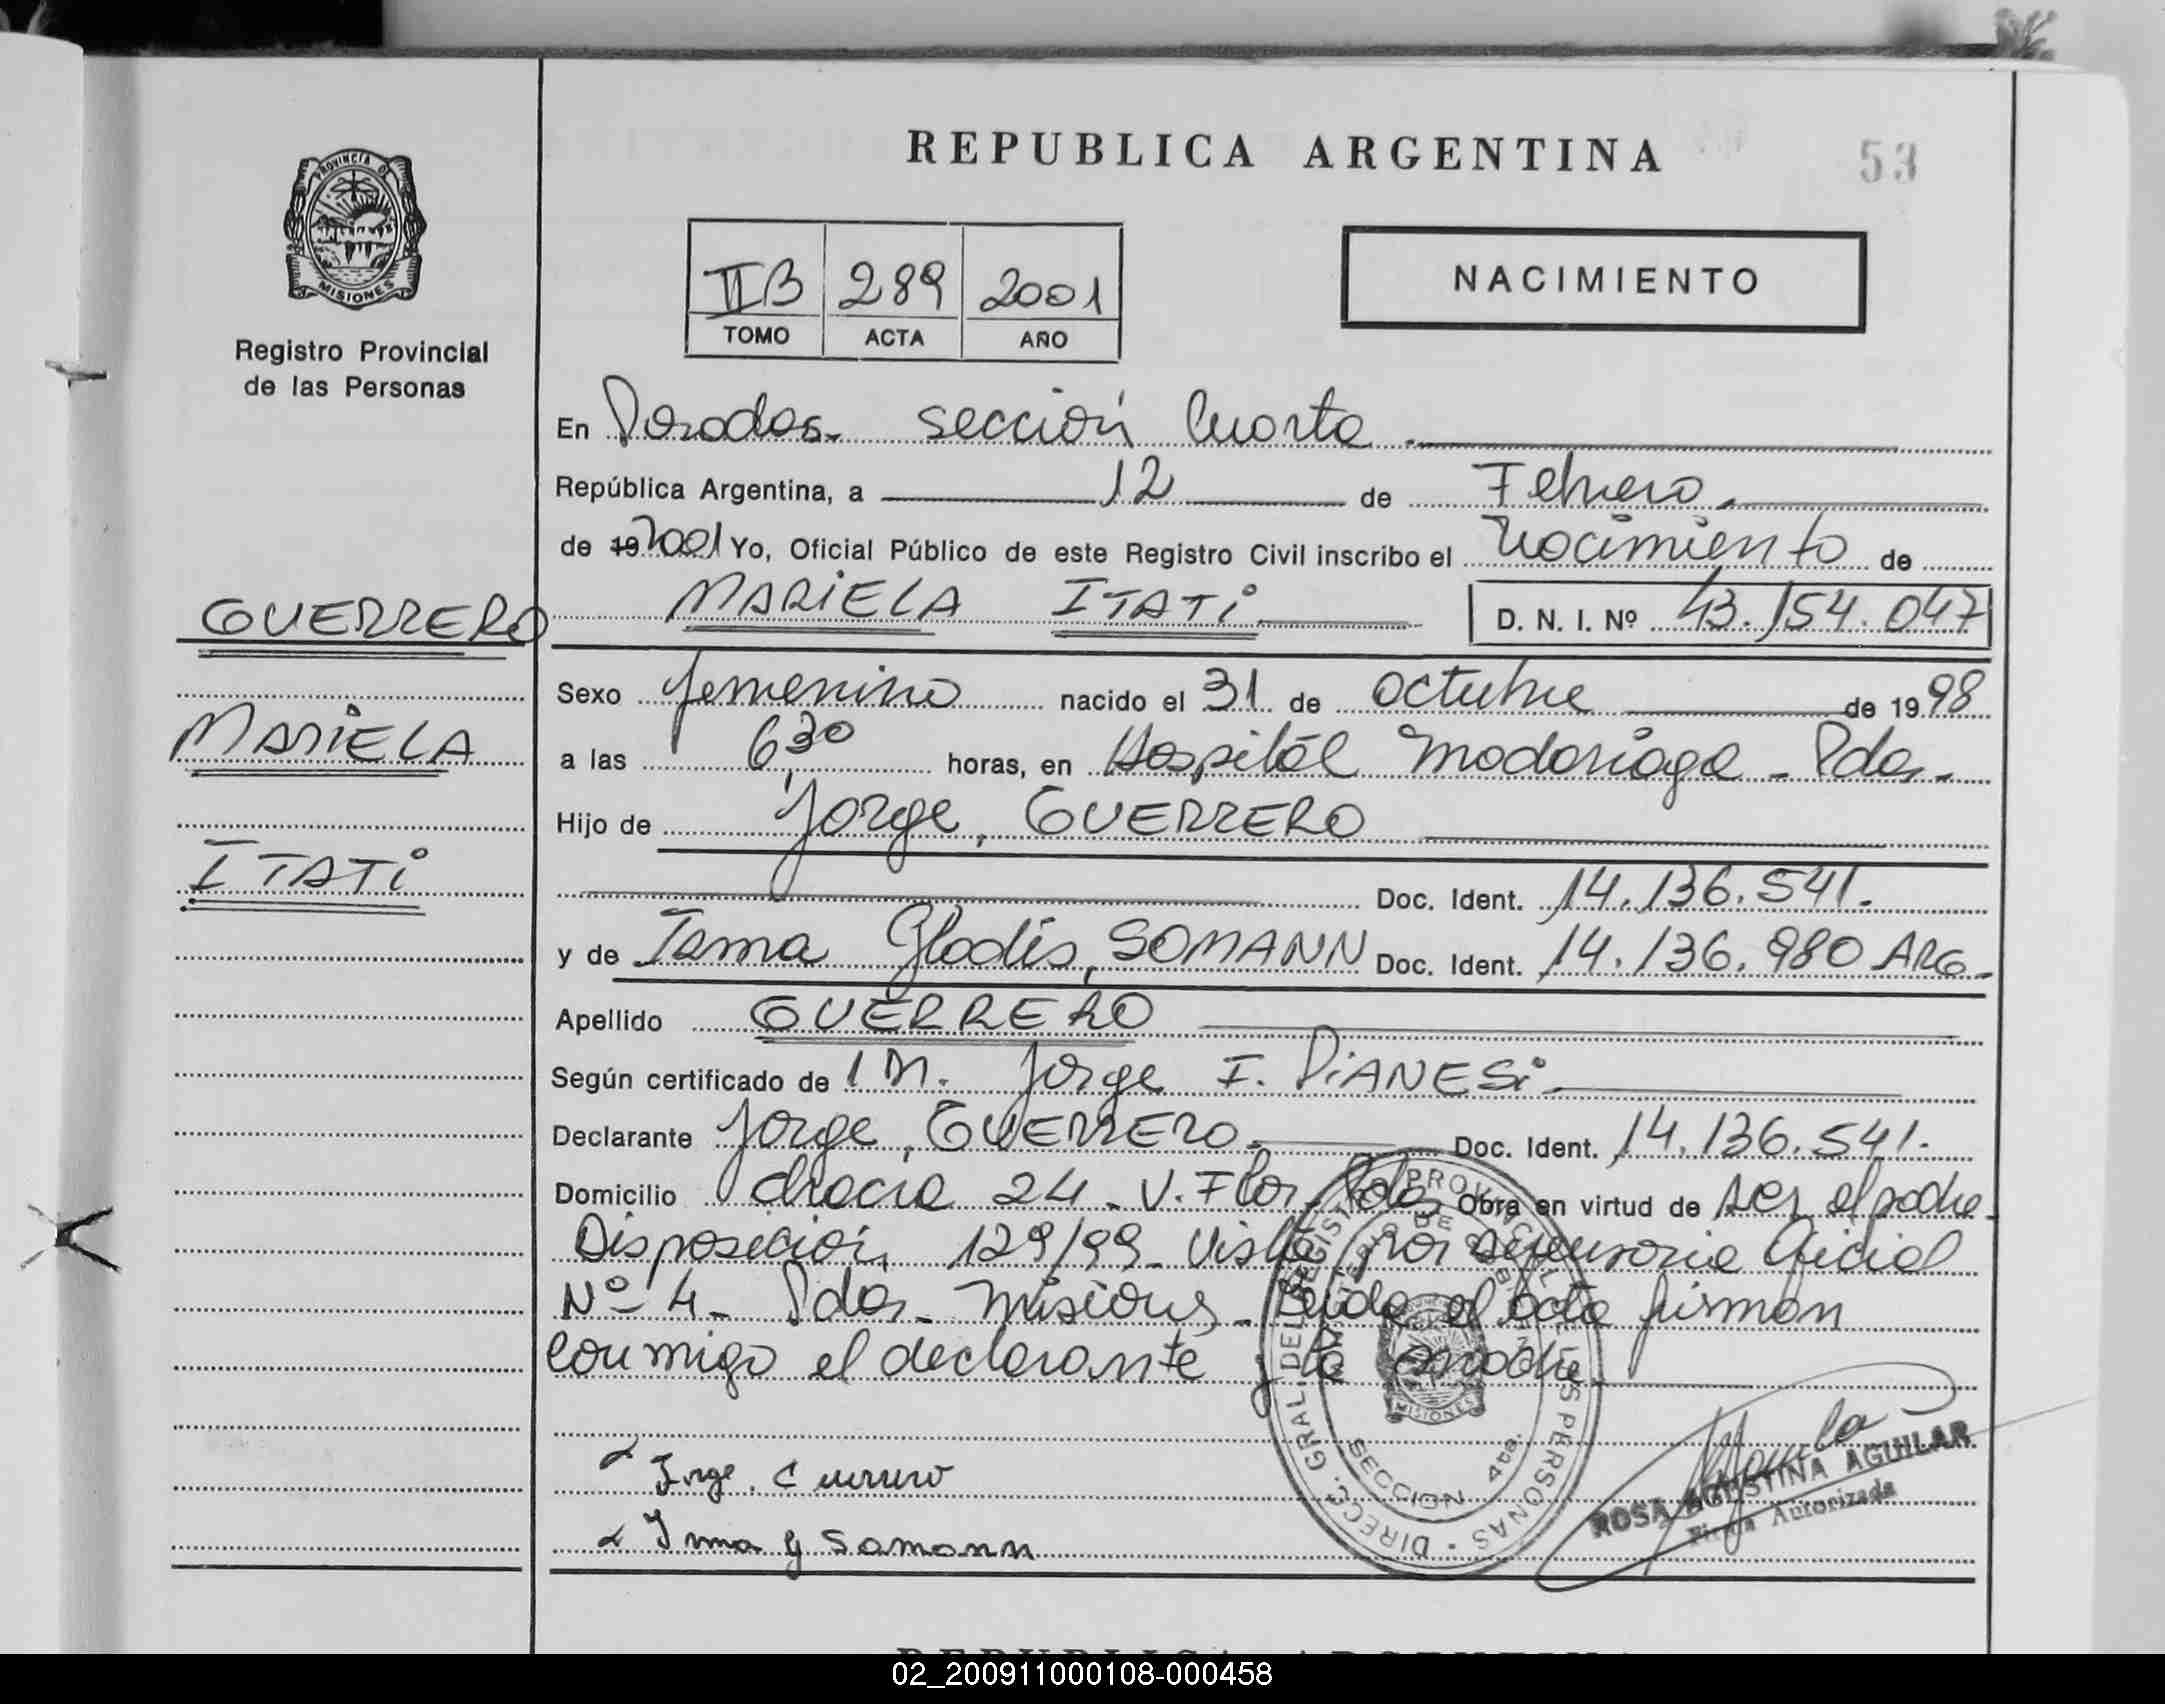 REPUBLICA ARGENTINA
53
PROVINCIA DE
MISIONES
Registro Provincial
de las Personas
IIB 289 2001
TOMO ACTA AÑO
NACIMIENTO
En Posadas. sección Cuarta.
República Argentina, a 12 de Febrero.
de 19 2001 Yo, Oficial Público de este Registro Civil inscribo el nacimiento de
GUERRERO
MARIELA ITATI D. N. I. Nº 43.154.047
Sexo femenino nacido el 31 de octubre de 1998
MARIELA
a las 6,30 horas, en Hospital Madariaga - Pdas.
Hijo de Jorge, GUERRERO
ITATI
Doc. Ident. 14.136.541.
y de Irma Gladis, SOMANN Doc. Ident. 14.136.980 ARG.
Apellido GUERRERO
Según certificado de Jorge I. PIANESI.
Declarante Jorge, GUERRERO. Doc. Ident. 14.136.541.
Domicilio chacra 24 - V. Flor. Pdas Obra en virtud de ser el padre.
Disposición 129/99. Visto por
Nº 4 - Pdas. Misiones. Leída el acta firman
conmigo el declarante y la madre.
Jorge. Guerrero
Irma G Somann
DIRECC. GRAL. DEL REGISTRO PROVINCIAL DE LAS PERSONAS
MINISTERIO DE GOBIERNO
MISIONES
SECCION 4ta.
ROSA AGUSTINA AGUILAR
Firma Autorizada
REPUBLICA ARGENTINA
02_200911000108-000458